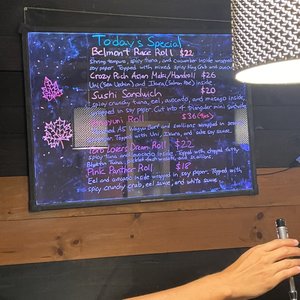 Today's Special
Belmont Race Roll $22
Shrimp tempura, spicy tuna, and cucumber inside wrapped in
soy paper. Topped with mixed spicy king crab and
Crazy Rich Asian Maki/Handroll $26
Uni (Sea Urchin) and Ikura (Salmon roe)
Sushi Sandwich $20
spicy crunchy tuna, eel, avocado, and masago inside
wrapped in soy paper. Cut into 4 triangular mini sandwich
Roll $36
A5 Wagyu Beef and scallions wrapped in
Topped with Uni, Ikura, and sauce
Lovers Dream Roll $22
Spicy tuna and avocado inside. Topped with chopped fatty
Bluefin Tuna, and scallions.
Pink Panther Roll $18
Eel and avocado inside wrapped in soy paper. Topped with
spicy crunchy crab, eel sauce, and white sauce